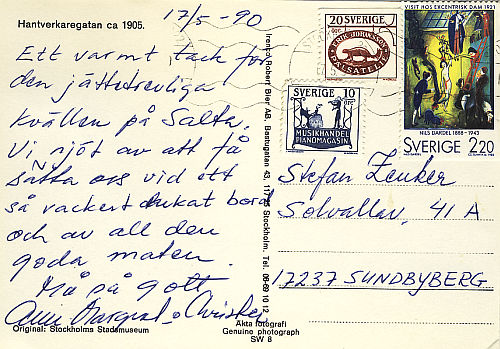 Hantverkaregatan ca 1905.
17/5-90
Ett varmt tack för
den jättetrevliga
kvällen på Salta.
Vi njöt av att få
sätta oss vid ett
så vackert dukat bord
och av all den
goda maten.
Må så gott
Ann Margret o Christer
Original: Stockholms Stadsmuseum
Irento, Robert Bier AB, Bastugatan 43, Stockholm. Tel. 08-69 10 12
Akta fotografi
Genuine photograph
SW 8
20 SVERIGE
ERIK JOHANSSON
PÄLSATELJE
SVERIGE 10
öre
MUSIKHANDEL
PIANOMAGASIN
VISIT HOS EXCENTRISK DAM 1921
NILS DARDEL 1888-1943
SVERIGE 2.20
Stefan Zenker
Solvallav. 41 A
17237 SUNDBYBERG